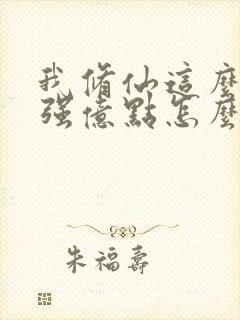 我脩仙這麼
强億點怎麼
朱福壽